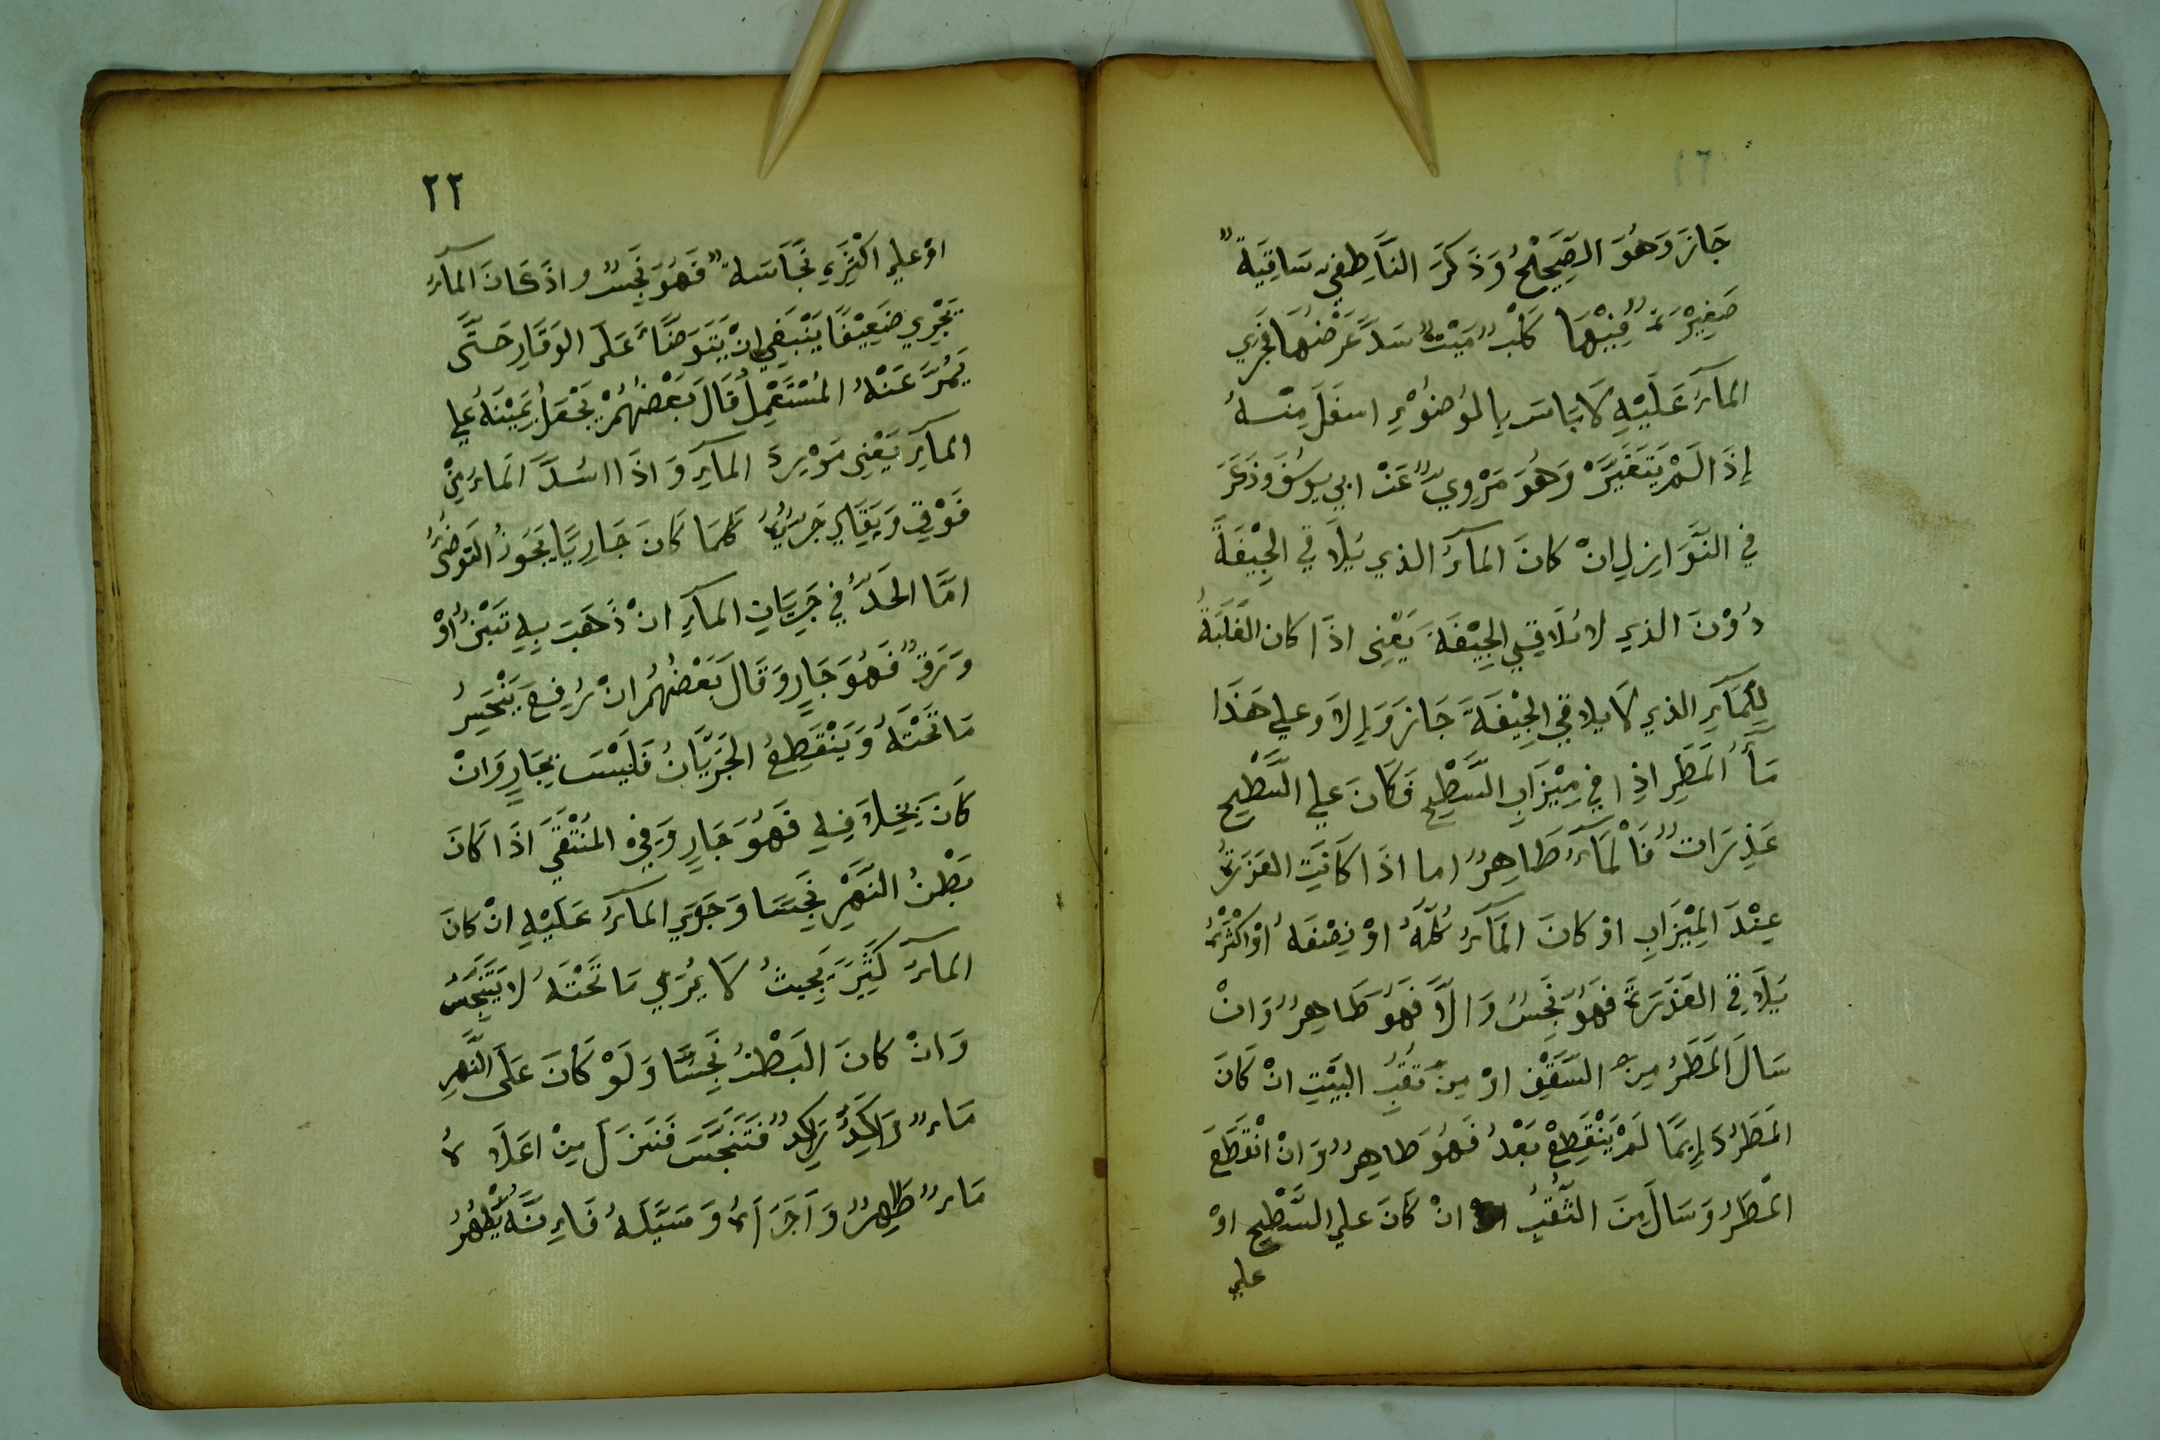 ١٦
جَازَ وَهُوَ الصَّحِيْحُ وَذَكَرَ النَّاطِفِي سَاقِيَةً
صَغِيْرَةً فِيْهَا كَلْبٌ مَيْتٌ سَدَّ عَرْضَهَا فَجَرِي
المَآءُ عَلَيْهِ لَا بَاسَ بِالوُضُوْءِ اسفَلَ مِنْهُ
إِذَا لَمْ يَتَغَيَّرْ وَهُوَ مَرْوِيٌّ عَنْ ابي يوسُفَ وَذَكَرَ
فِي النَّوَازِلِ انْ كَانَ المَآءُ الذي يُلَاقِي الجِيْفَةَ
دُوْنَ الذي لا يُلَاقِي الجِيْفَةَ يَعْنِي اذَا كان الغَلَبَةُ
لِلْمَآءِ الذي لَا يلاقي الجِيْفَةَ جَازَ وَإِلَّا وَعلي هَذَا
مَأُ المَطَرِ اذَا في مِيْزَابِ السَّطْحِ وَكَانَ علي السَّطْحِ
عَذِرَاتٌ فَالْمَآءُ طَاهِرٌ اما اذَا كَانَتِ العَذَرَةُ
عِنْدَ المِيْزَابِ اوْ كانَ المَآءُ كُلُّهُ اوْ نِصْفُهُ اوْ اكْثَرُهُ
يُلَاقِي العَذَرَةَ فَهُوَ نَجِسٌ وَالَّا فَهُوَ طَاهِرٌ وَانْ
سَالَ المَطَرُ مِنَ السَّقْفِ اوْ مِنْ ثُقُبِ البَيْتِ انْ كَانَ
المَطَرُ دَايِمًا لَمْ يَنْقَطِعْ بَعْدُ فَهُوَ طَاهِرٌ وَانْ انْقَطَعَ
المَطَرُ وَسَالَ مِنَ الثُّقُبِ انْ كَانَ علي السَّطْحِ اوْ
علي
٢٢
اوْ علي اكْثَرِهِ نَجَاسَةٌ فَهُوَ نَجِسٌ وَ اذَا كَانَ المَآءُ
يَجْرِي ضَعِيْفًا يَنْبَغِي انْ يَتَوَضَّاءَ عَلَي الوَقَارِ حَتَّي
يَمُرَّ عَنْهُ المُسْتَعْمَلُ قَالَ بَعْضُهُمْ يَجْعَلُ يَمِيْنَهُ علي
المَآءِ يَعْنِي مَوْرِدَ المَآءِ وَ اذَا اسُدَّ المَاءُ مِنْ
فَوْقٍ وَ بَقِي جَرْيُهُ كَمَا كَانَ جَارِيًا يَجُوزُ التوَضُّئُ
امَّا الحَدُّ في جَرَيَانِ المَآءِ انْ ذَهَبَ بِهِ تِبْنٌ اوْ
وَرَقٌ فَهُوَ جَارٍ وَ قَالَ بَعْضُهُمُ انْ رُفِعَ يَنْحَسِرُ
مَا تَحْتَهُ وَيَنْقَطِعُ الجَرَيَانُ فَلَيْسَ بِجَارٍ وَانْ
كَانَ بِخِلَافِهِ فَهُوَ جَارٍ وَفِي المُنْتَقَي اذَا كَانَ
بَطْنُ النَّهْرِ نَجِسًا وَجَرَي المآءُ عَلَيْهِ انْ كانَ
المآءُ كَثِيْرَ بِحَيْثُ لَا يُرَي مَا تَحْتَهُ لا يَتَنَجَّسُ
وَانْ كانَ البَطْنُ نَجِسًا وَ لَوْ كَانَ عَلَي النَّهْرِ
مَاءٌ رَاكِدٌ رَاكِدٌ فَتَنَجَّسَ فَنَزَلَ مِنْ اعَلَاهُ
مَاءٌ طَاهِرٌ وَ اَجْرَاَهُ وَ سَيَّلَهُ فَاءِنَّهُ يَطْهُرُ